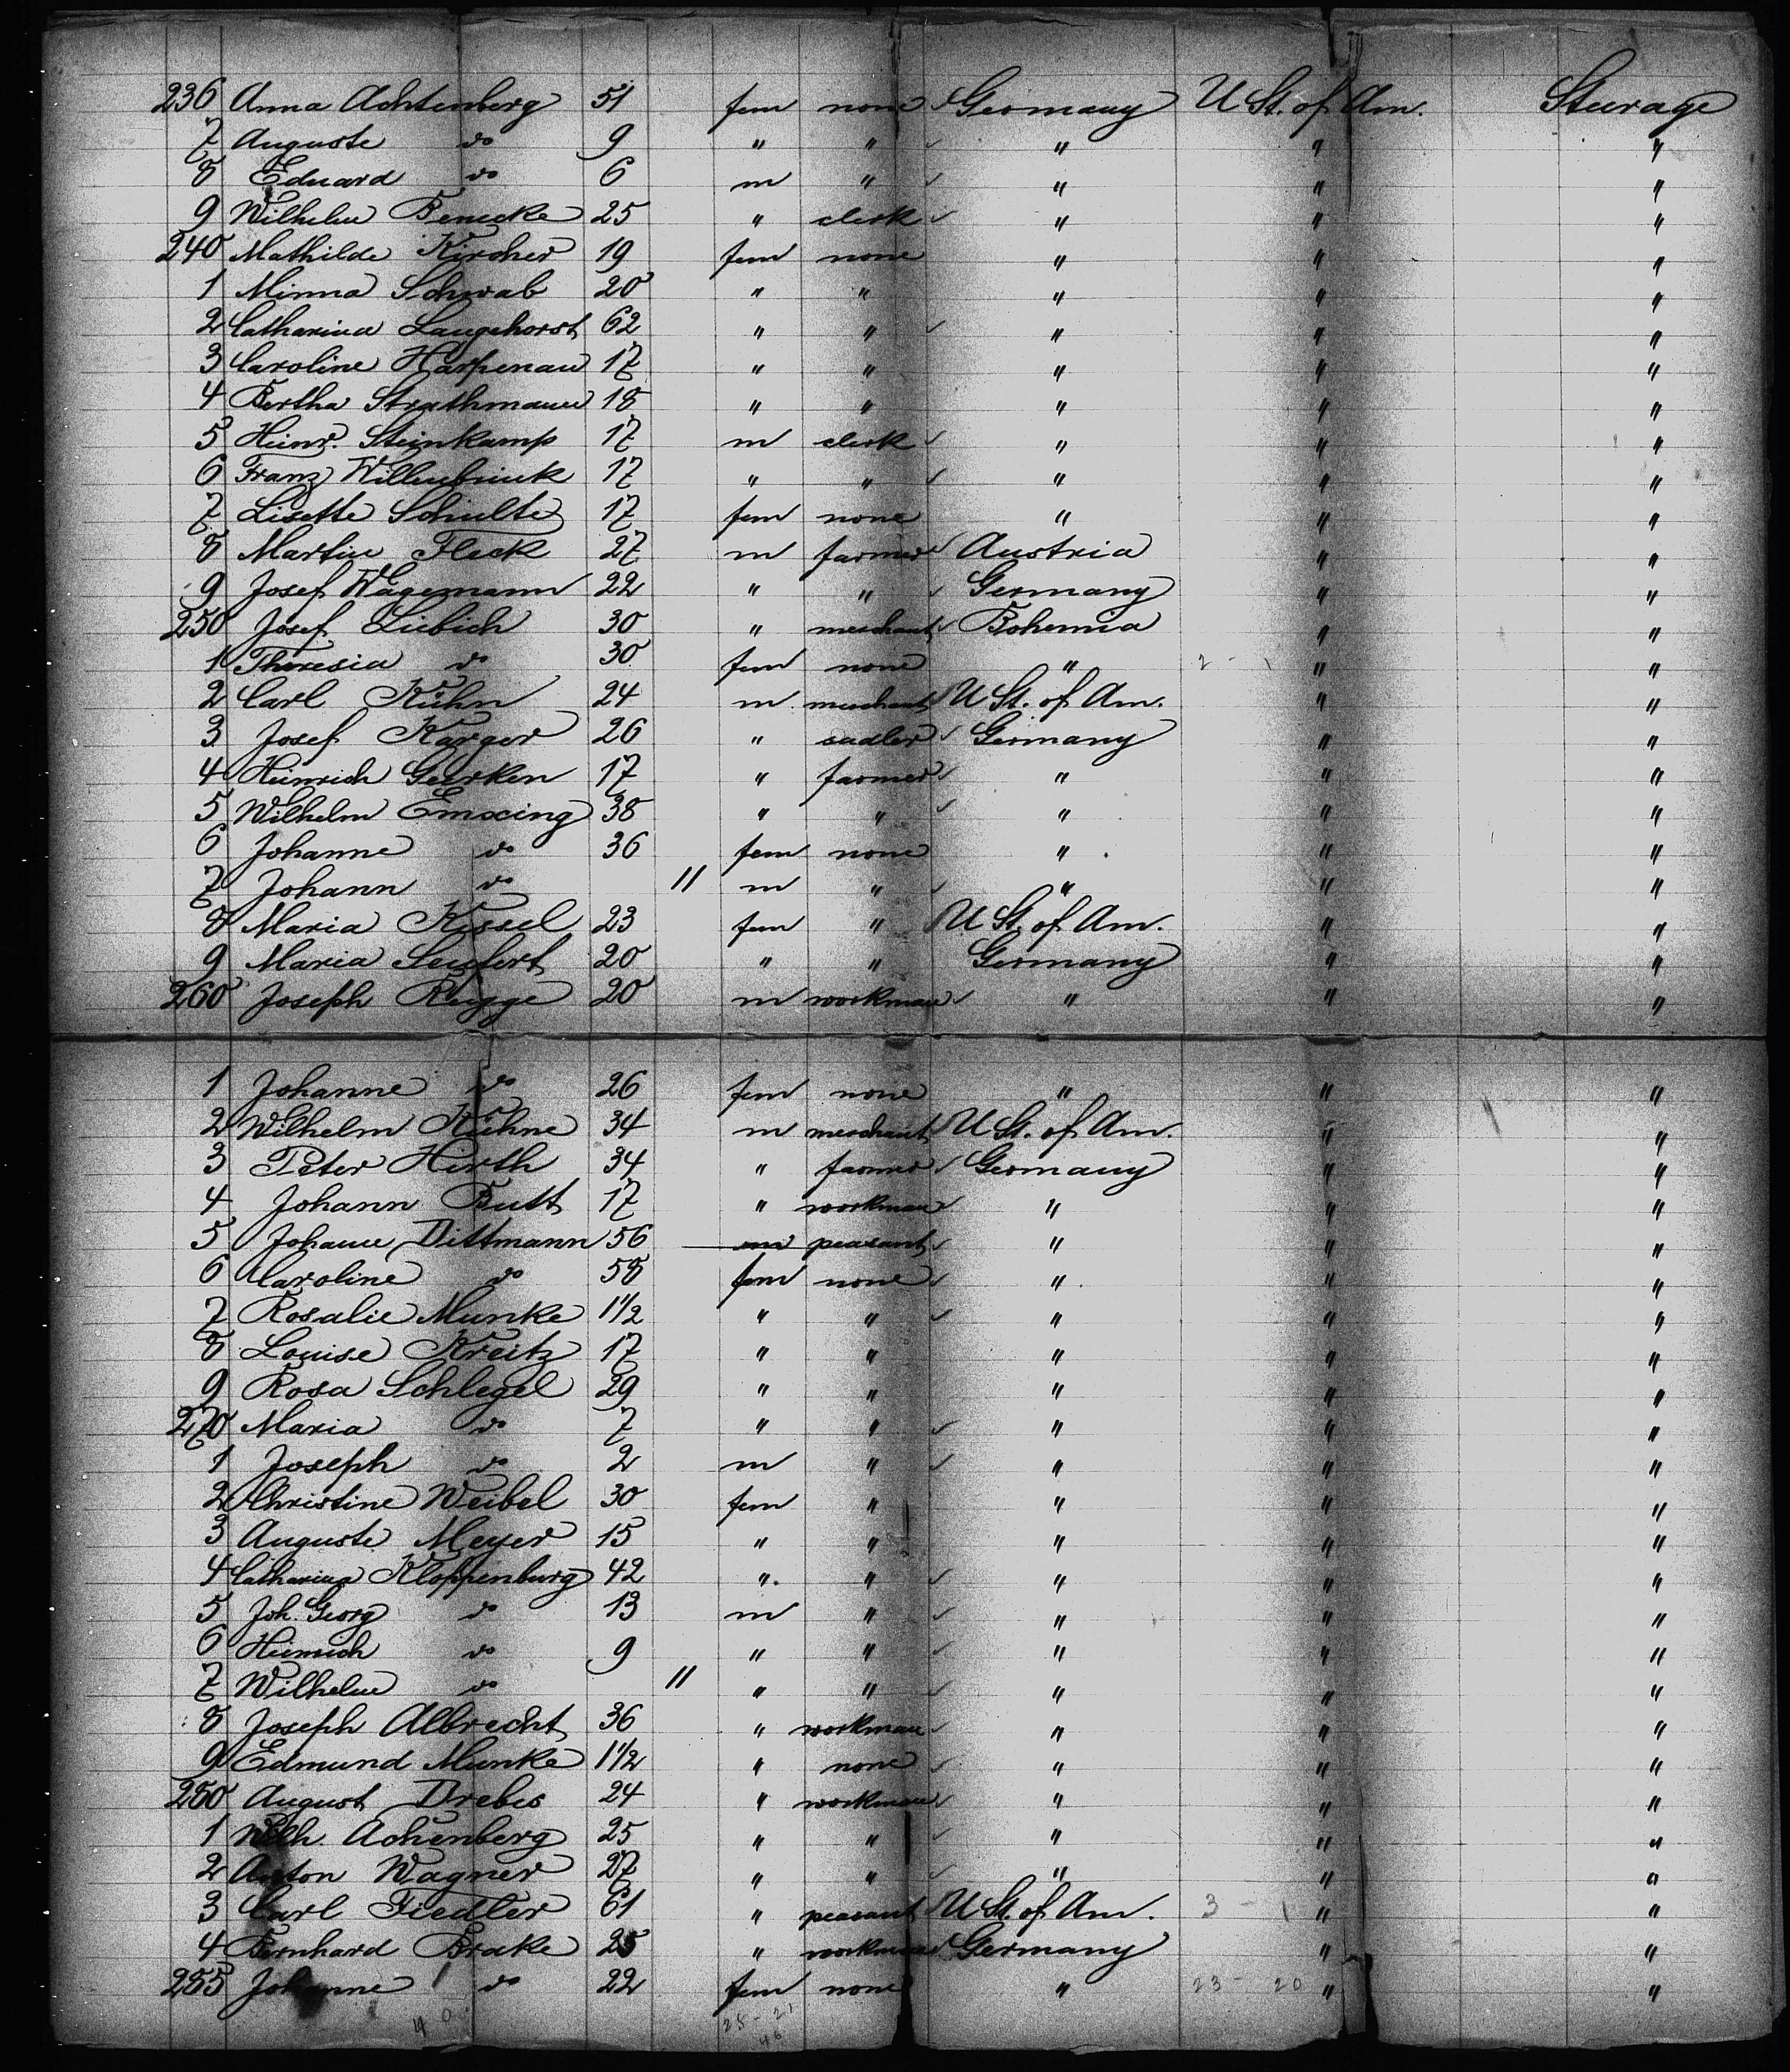 236 Anna Achtenberg 51 fem none Germany U St. of Am. Sturage
7 Auguste do 9 " " " " "
8 Eduard do 6 m " " " "
9 Wilhelm Benecke 25 " clerk " " "
240 Mathilde Kircher 19 fem none " " "
1 Minna Schwab 20 " " " " "
2 Catharina Langehorst 62 " " " " "
3 Caroline Harpenau 17 " " " " "
4 Bertha Strathmann 18 " " " " "
5 Heinr. Steinkamp 17 m clerk " " "
6 Franz Willenbrink 17 " " " " "
7 Lisette Schulte 17 fem none " " "
8 Martin Fleck 27 m farmer Austria " "
9 Josef Wagemann 22 " " Germany " "
250 Josef Liebich 30 " merchant Bohemia " "
1 Theresia do 30 fem none " 2 - 1 " "
2 Carl Kühn 24 m merchant U St. of Am. " "
3 Josef Karger 26 " sadler Germany " "
4 Heinrich Geerken 17 " farmer " " "
5 Wilhelm Emxing 38 " " " " "
6 Johanne do 36 fem none " " "
7 Johann do 11 m " " " "
8 Maria Kissel 23 fem " U St. of Am. " "
9 Maria Seufert 20 " " Germany " "
260 Joseph Rugge 20 m workman " " "
1 Johanne do 26 fem none " " "
2 Wilhelm Kühne 34 m merchant U St. of Am. " "
3 Peter Hirth 34 " farmer Germany " "
4 Johann Butt 17 " workman " " "
5 Johann Dittmann 56 m peasant " " "
6 Caroline do 58 fem none " " "
7 Rosalie Munke 1 1/2 " " " " "
8 Louise Kreitz 17 " " " " "
9 Rosa Schlegel 29 " " " " "
270 Maria do 7 " " " " "
1 Joseph do 2 m " " " "
2 Christine Weibel 30 fem " " " "
3 Auguste Meyer 15 " " " " "
4 Catharina Kloppenburg 42 " " " " "
5 Joh. Georg do 13 m " " " "
6 Heinrich do 9 " " " " "
7 Wilhelm do 11 " " " " "
8 Joseph Albrecht 36 " workman " " "
9 Edmund Munke 1 1/2 " none " " "
280 August Drebes 24 " workman " " "
1 Wilh. Achenberg 25 " " " " "
2 Anton Wagner 27 " " " " "
3 Carl Fiedler 61 " peasant U St. of Am. 3 - 1 " "
4 Bernhard Brake 25 " workman Germany " "
285 Johanne do 22 fem none " 23 - 20 " "
40 25 - 21
46